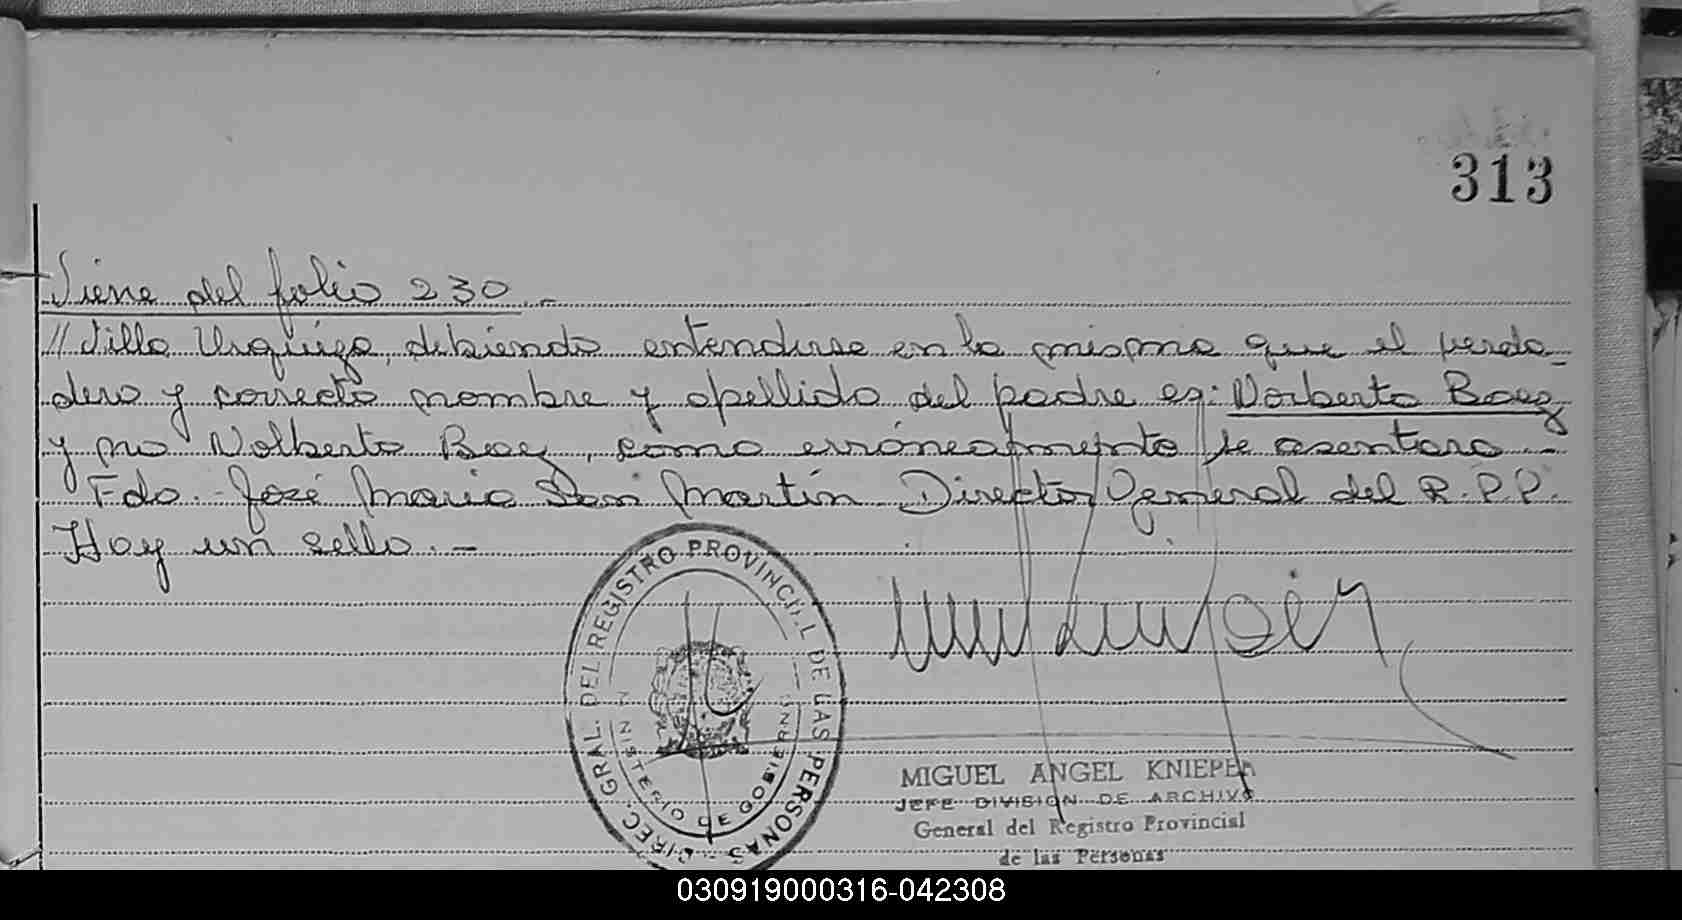 313
Viene del folio 230.-
//Villa Urquiza, debiendo entenderse en la misma que el verda-
dero y correcto nombre y apellido del padre es: Norberto Baez
y no Nolberto Baez, como erróneamente se asentara.-
Fdo. José Maria San Martín Director General del R.P.P.
Hay un sello.-
DIREC. GRAL. DEL REGISTRO PROVINCIAL DE LAS PERSONAS
MINISTERIO DE GOBIERNO
MIGUEL ANGEL KNIEPER
JEFE DIVISION DE ARCHIVO
General del Registro Provincial
de las Personas
030919000316-042308